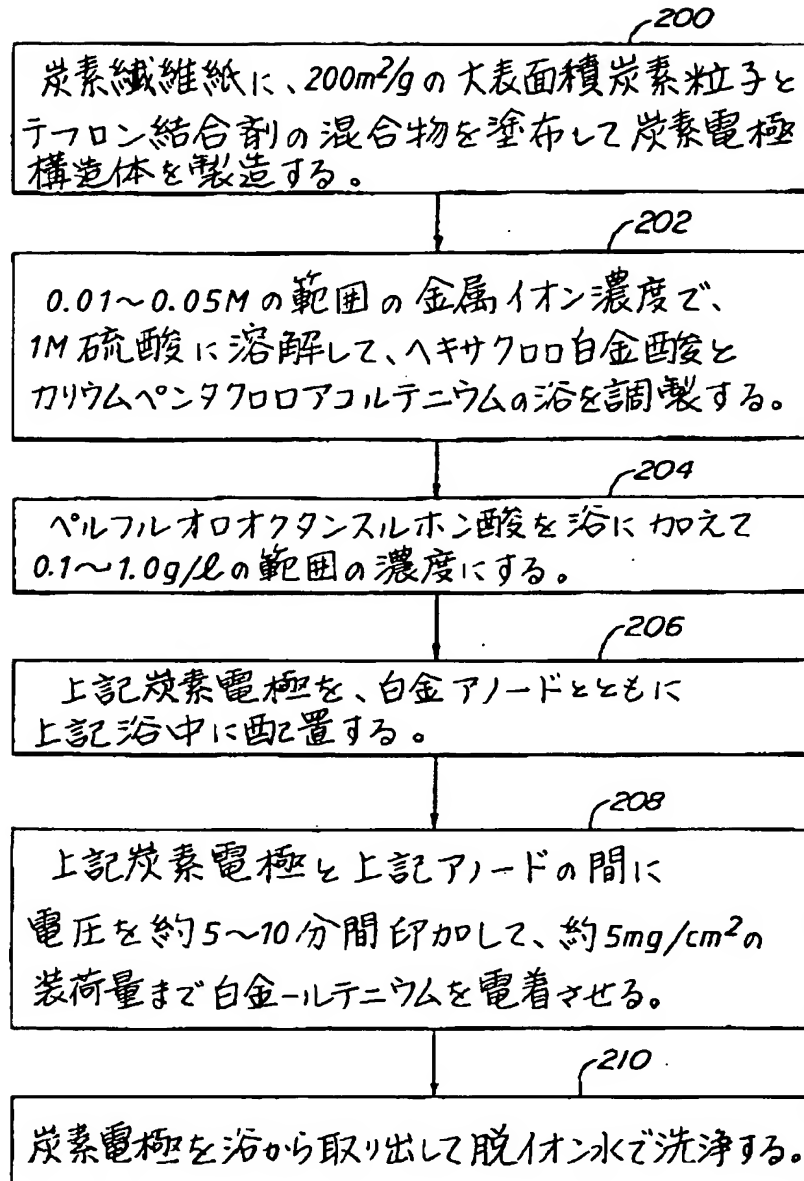 200
炭素繊維紙に、200m²/gの大表面積炭素粒子と
テフロン結合剤の混合物を塗布して炭素電極
構造体を製造する。
202
0.01~0.05Mの範囲の金属イオン濃度で、
1M硫酸に溶解して、ヘキサクロロ白金酸と
カリウムペンタクロロアコルテニウムの浴を調製する。
204
ペルフルオロオクタンスルホン酸を浴に加えて
0.1~1.0g/ℓの範囲の濃度にする。
206
上記炭素電極を、白金アノードとともに
上記浴中に配置する。
208
上記炭素電極と上記アノードの間に
電圧を約5~10分間印加して、約5mg/cm²の
装荷量まで白金ールテニウムを電着させる。
210
炭素電極を浴から取り出して脱イオン水で洗浄する。